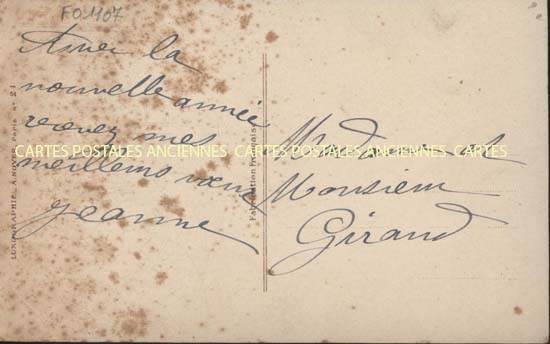 FO 1107
Avec la
nouvelle année
recevez mes
meilleurs vœux
Jeanne
Madame et
Monsieur
Giraud
LUXOGRAPHIE, A NOYER, Paris n° 21
Fabrication Française
CARTES POSTALES ANCIENNES CARTES POSTALES ANCIENNES CARTES